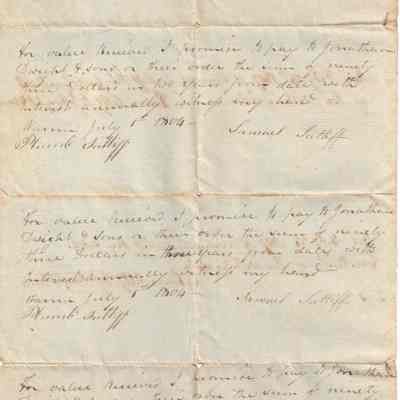 For value Received I promise to pay to Jonathan
Dwight & Sons or their order the sum of ninety
three Dollars in two years from date with
interest annually witness my hand
July 1st 1804
Samuel Sutliff
Plumb Sutliff
For value Received I promise to pay to Jonathan
Dwight & Sons or their order the sum of ninety
three Dollars in three years from date with
Interest annually witness my hand
July 1st 1804
Samuel Sutliff
Plumb Sutliff
For value Received I promise to pay to Jonathan
order the sum of ninety